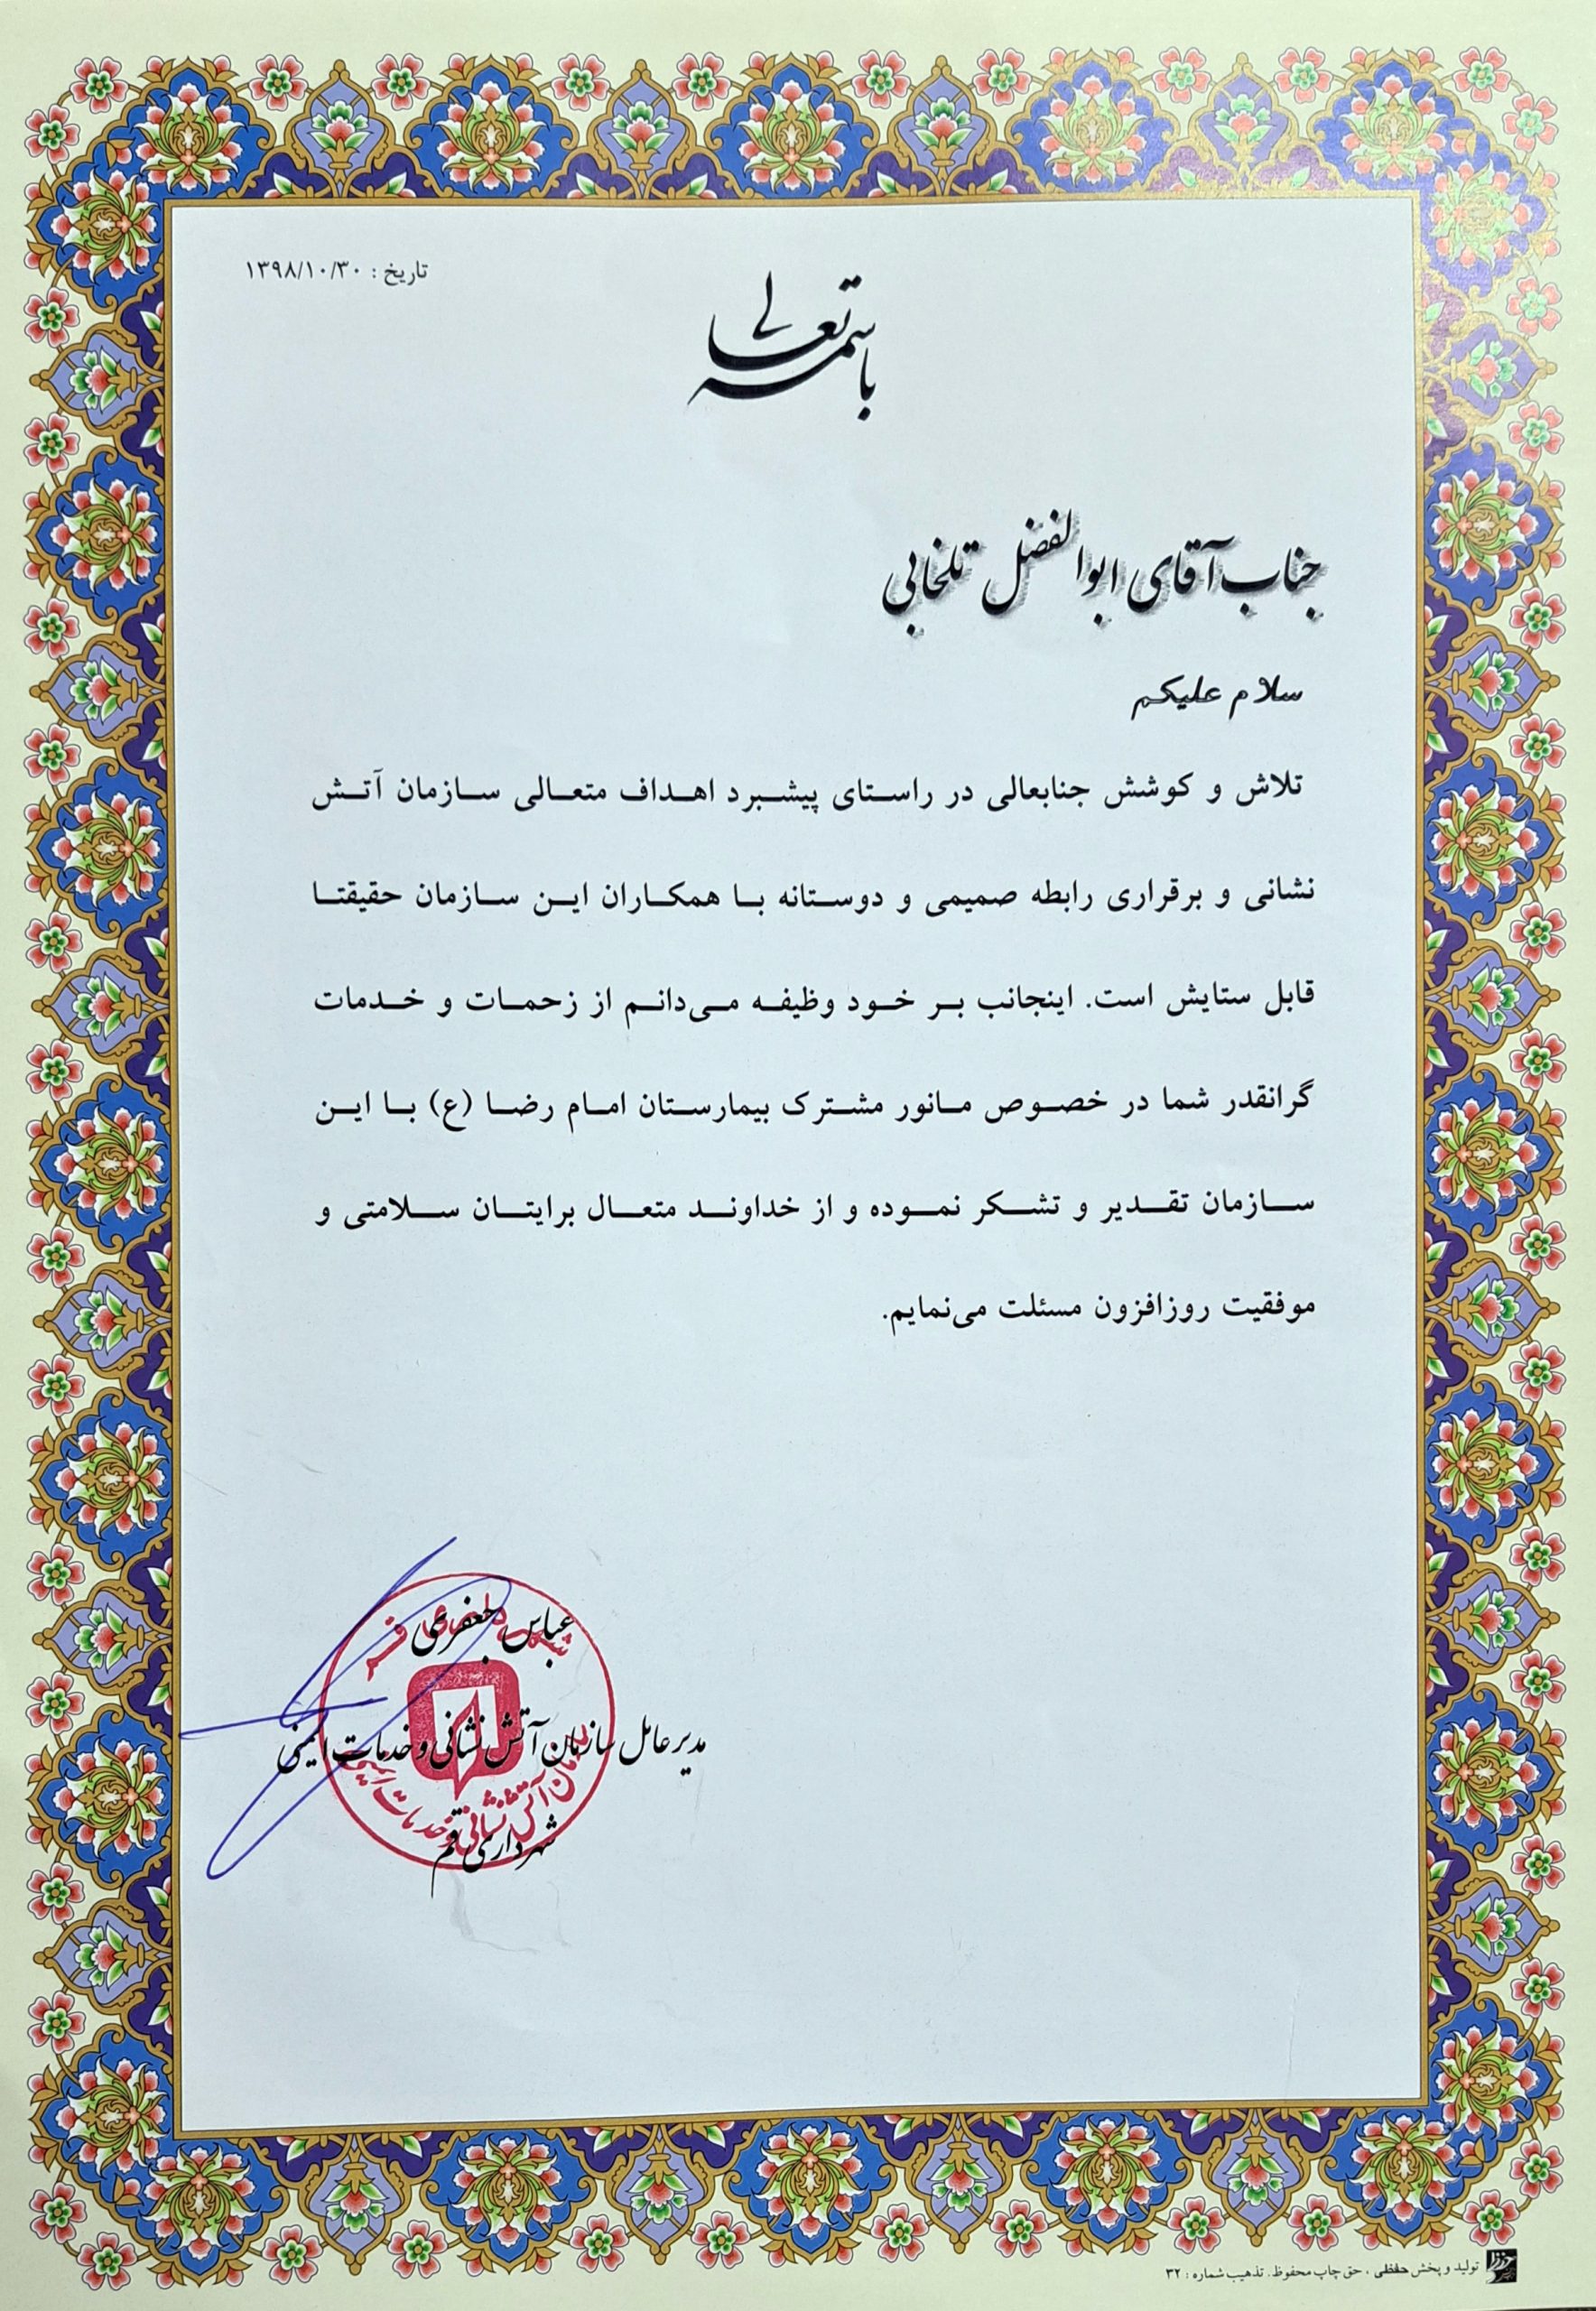 تاریخ : ۱۳۹۸/۱۰/۳۰
باسمه تعالی
جناب آقای ابوالفضل تلخابی
سلام علیکم
تلاش و کوشش جنابعالی در راستای پیشبرد اهداف متعالی سازمان آتش
نشانی و برقراری رابطه صمیمی و دوستانه با همکاران این سازمان حقیقتا
قابل ستایش است. اینجانب بر خود وظیفه می‌دانم از زحمات و خدمات
گرانقدر شما در خصوص مانور مشترک بیمارستان امام رضا (ع) با این
سازمان تقدیر و تشکر نموده و از خداوند متعال برایتان سلامتی و
موفقیت روزافزون مسئلت می‌نمایم.
عباس جعفری
مدیر عامل سازمان آتش نشانی و خدمات ایمنی
شهرداری قم
سازمان آتش نشانی و خدمات ایمنی
تولید و پخش حفظی ، حق چاپ محفوظ. تذهیب شماره : ۳۲